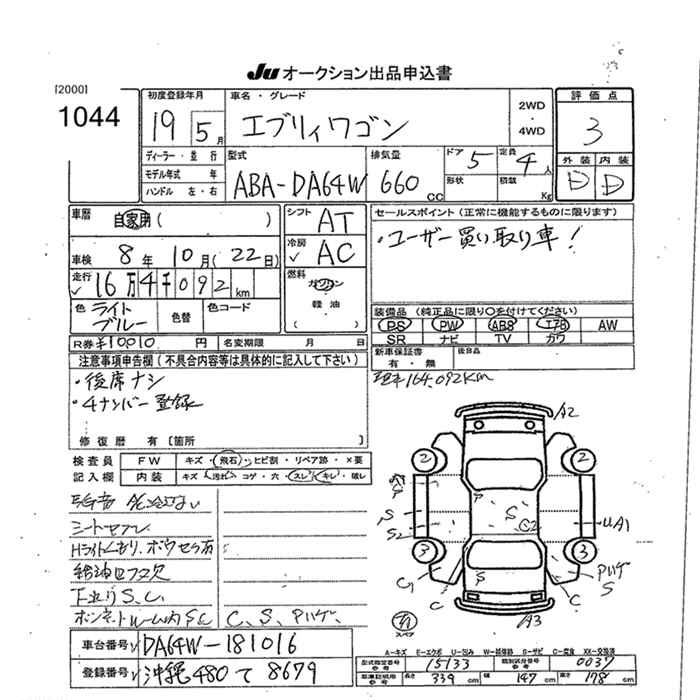 JU オークション出品申込書
[2000]
1044
初度登録年月
19 5月
車名・グレード
エブリィワゴン
2WD
・
4WD
評価点
3
外装 内装
D D
ディーラー・並行
モデル年式 年
ハンドル 左・右
型式
ABA-DA64W
排気量
660 cc
ドア 5
形状
定員 4人
積載 Kg
車歴
自家用 ( )
車検 8年 10月 (22日)
走行 16万4千092km
色 ライトブルー
色替
色コード
シフト AT
冷房 AC
燃料
ガソリン
・
軽油
( )
セールスポイント (正常に機能するものに限ります)
・ユーザー買い取り車!
装備品 (純正品に限り○を付けてください)
PS PW ABS エアB AW
SR ナビ TV カワ
R券 ¥10010 円
名変期限 月 日
新車保証書
有・無
後日品
注意事項申告欄 (不具合内容等は具体的に記入して下さい)
・後席ナシ
・4ナンバー登録
164,092Km
修復歴 有 [箇所 ]
検査員
記入欄
FW キズ・飛石・ヒビ割・リペア跡・×要
内装 キズ・汚れ・コゲ・穴・スレ・キレ・破レ
シートセスレ
Hライトくもり、ボウセラ有
給油口フタ欠
下廻りS.C
ボンネットルーム内S.C
C、S、Pハゲ、
A2
2 2
P
S
S2
S
C2
UA1
3 3
C1
C
P
C
Pハゲ
S
A3
スペア
車台番号 DA64W-181016
登録番号 沖縄 480 て 8679
A-キズ E-エクボ U-凹み W-補修跡 S-サビ C-腐食 XX-交換済
型式指定番号 15133
類別区分番号 0037
長さ 339 cm 幅 147 cm 高さ 178 cm